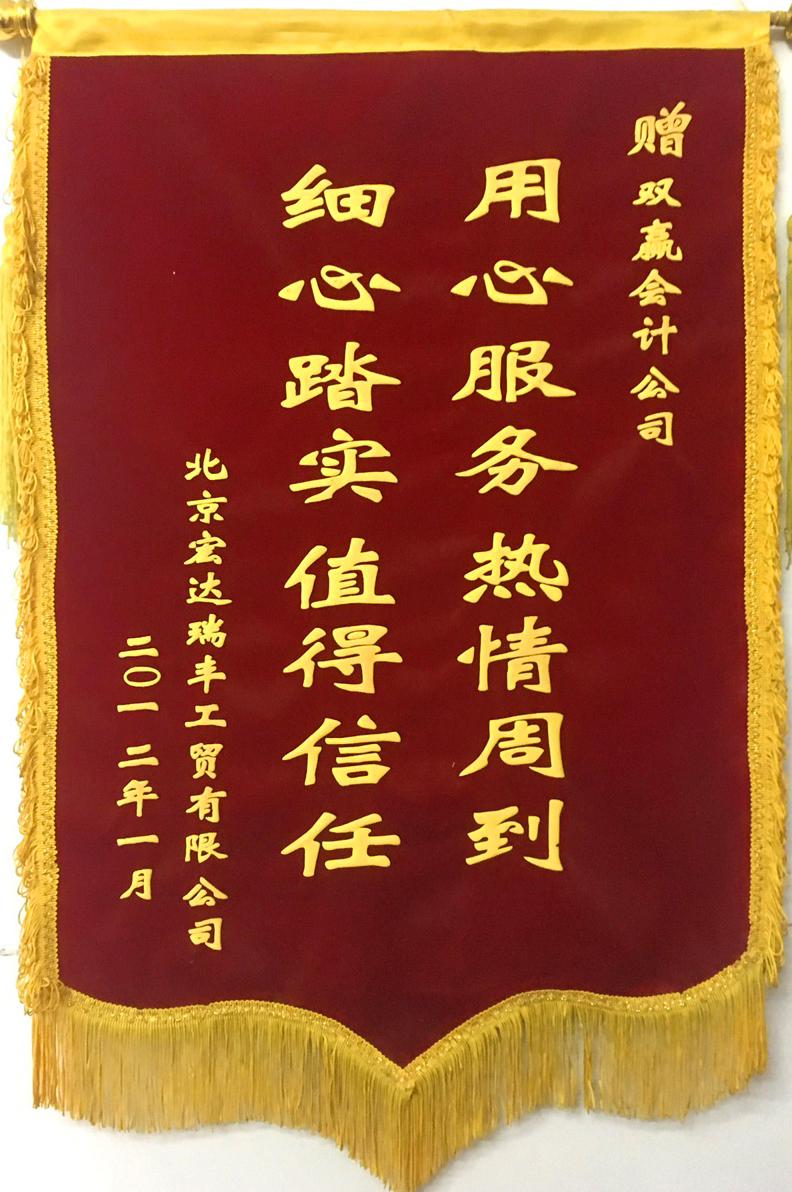 赠双赢会计公司
用心服务热情周到
细心踏实值得信任
北京宏达瑞丰工贸有限公司
二〇一二年一月